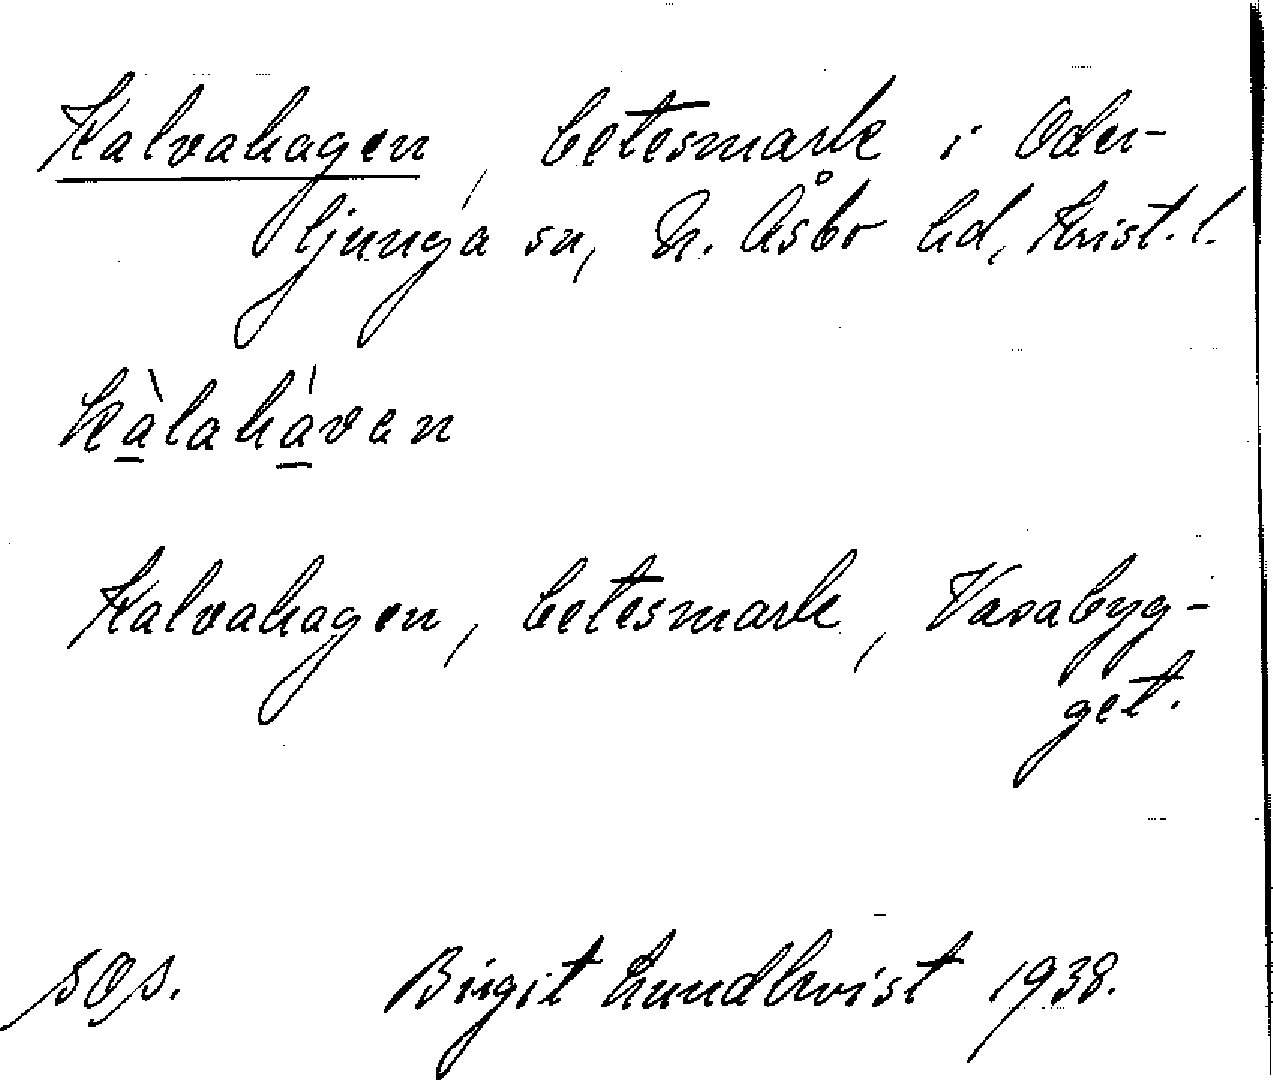 Kalvahagen, betesmark i Oder-
ljunga sn, N. Åsbo hd, Krist. l.
kàlahávan
Kalvahagen, betesmark, Vasabyg-
get.
Birgit Lundkvist 1938.